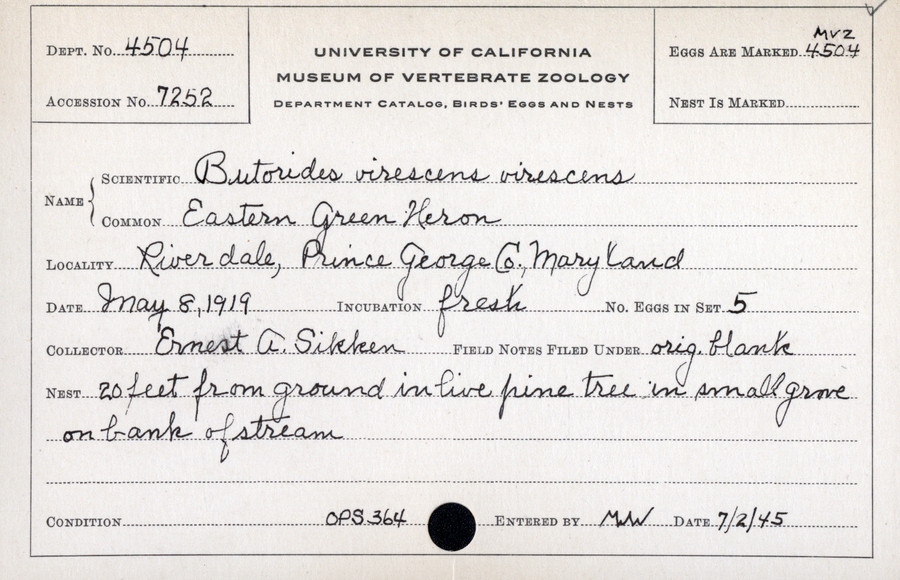 Dept. No. 4504
Accession No. 7252
UNIVERSITY OF CALIFORNIA
MUSEUM OF VERTEBRATE ZOOLOGY
Department Catalog, Birds' Eggs and Nests
MVZ
Eggs Are Marked 4504
Nest Is Marked
Name
Scientific Butorides virescens virescens
Common Eastern Green Heron
Locality Riverdale, Prince George Co., Maryland
Date May 8, 1919 Incubation fresh No. Eggs in Set 5
Collector Ernest A. Sikken Field Notes Filed Under orig. blank
Nest 20 feet from ground in live pine tree in small grove
on bank of stream
Condition OPS 364 Entered by MW Date 7/2/45